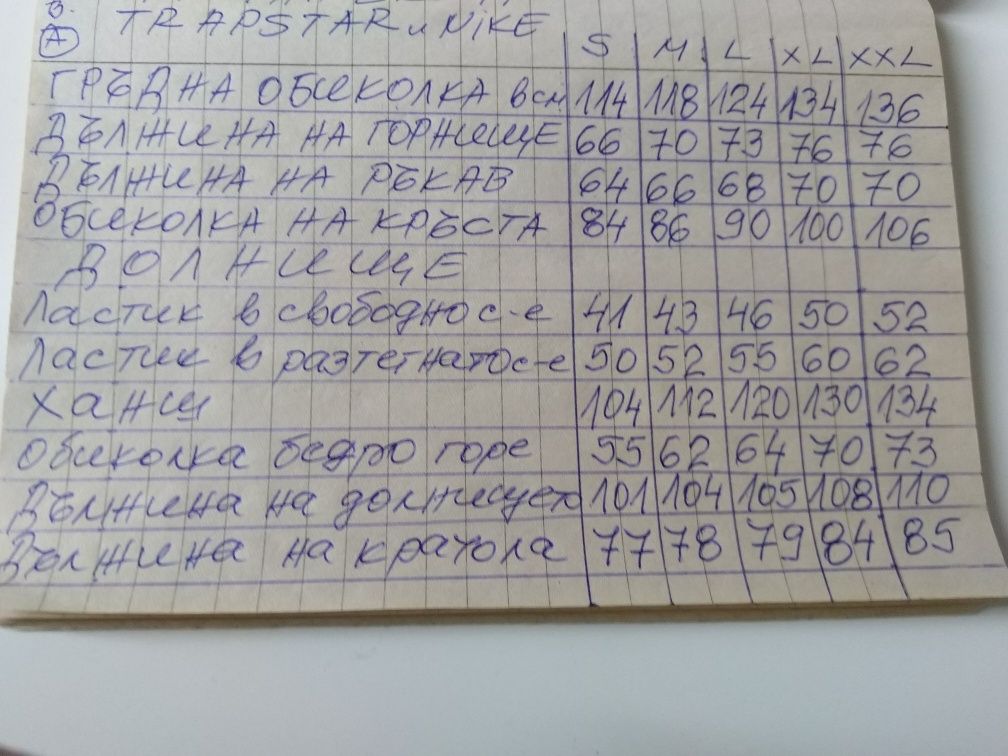 А TRAPSTAR и NIKE
S M L XL XXL
ГРЪДНА ОБИКОЛКА в см 114 118 124 134 136
ДЪЛЖИНА НА ГОРНИЩЕ 66 70 73 76 76
ДЪЛЖИНА НА РЪКАВ 64 66 68 70 70
ОБИКОЛКА НА КРЪСТА 84 86 90 100 106
ДОЛНИЩЕ
Ластик в свободнос-е 41 43 46 50 52
Ластик в разтегнатос-е 50 52 55 60 62
Ханш 104 112 120 130 134
Обиколка бедро горе 55 62 64 70 73
Дължина на долнището 101 104 105 108 110
Дължина на крачола 77 78 79 84 85